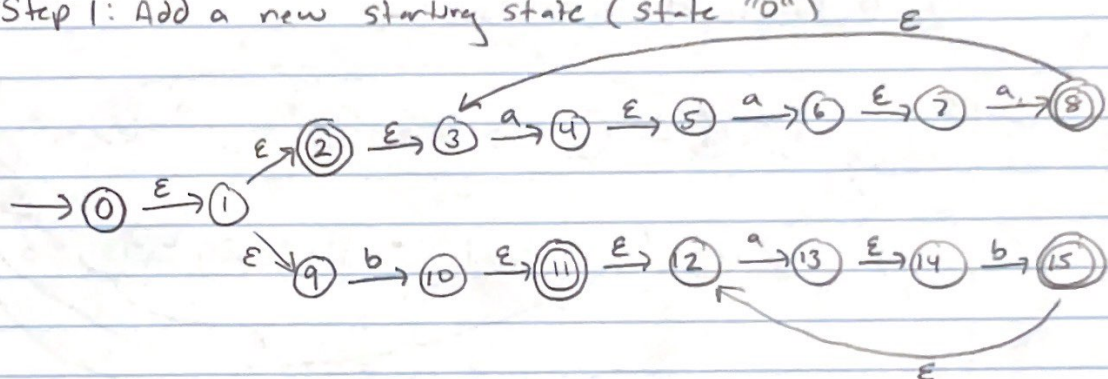 Step 1: Add a new starting state (state "0")
ε
ε 2 ε 3 a 4 ε 5 a 6 ε 7 a 8
0 ε 1
ε 9 b 10 ε 11 ε 12 a 13 ε 14 b 15
ε